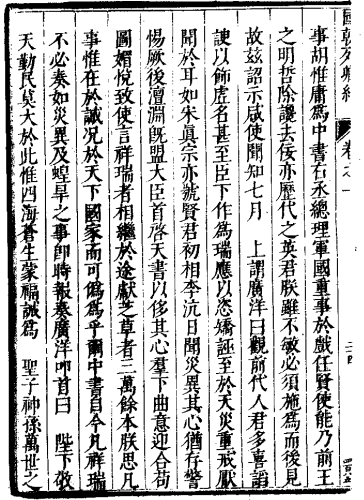 國朝列卿紀 卷之一
事胡惟庸爲中書右丞總理軍國重事於戲任賢使能乃前王
之明哲除讒去佞亦歷代之英君朕雖不敏必須施爲而後見
故兹詔示咸使聞知七月 上謂廣洋曰觀前代人君多喜諂
諛以飾虛名甚至臣下作爲瑞應以恣矯誣至於天災垂戒厭
聞於耳如宋真宗亦號賢君初相李沆日聞災異其心猶存警
惕厥後澶淵旣盟大臣首啓天書以侈其心羣下曲意迎合苟
圖媚悅致使言祥瑞者相繼於途獻芝草者三萬餘本朕思凡
事惟在於誠况於天下國家而可僞爲乎爾中書自今凡祥瑞
不必奏如災異及蝗旱之事即時報聞廣洋叩首曰 陛下敬
天勤民莫大於此惟四海蒼生蒙福誠爲 聖子神孫萬世之